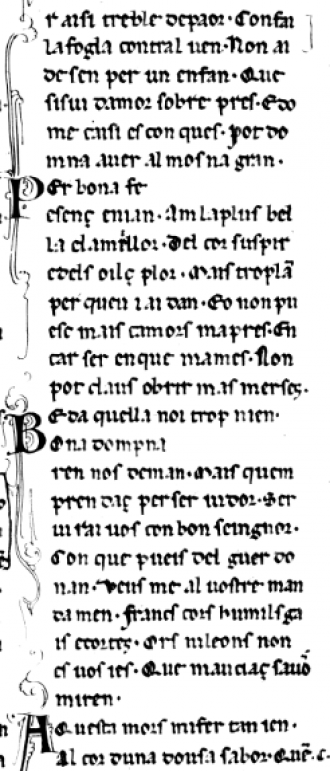 r aisi treble depaor. Confai
la fogla contral uen. Non ai
de sen per un enfan. Que
sisui damor sobre pres. E do
me cuit es con ques. pot do
mna auer al mosna gran.
PEr bona fe
e senç enian. Am la plus bel
la e la meillor. Del cor suspir
e dels oilç plor. Mais tropla
per queu i ai dan. Eo non pu
esc mais camors ma pres. En
car ser en que mames. Non
pot claus obrir mas merseç.
E da quella noi trop nien.
BOna dompna
ren nos deman. Mais quem
prendaç per seruidor. Ser
uirai uos con bon seingnor.
Con que pueis del guer do
nan. Veus me al uostre man
da men. francs cors humils ga
is e corteç. Ors ni leons non
es uos ies. Que mauciaç sauos
mi ren.
AQuesta mors mi fer tan ien.
Al cor duna dousa sabor. Que. c.